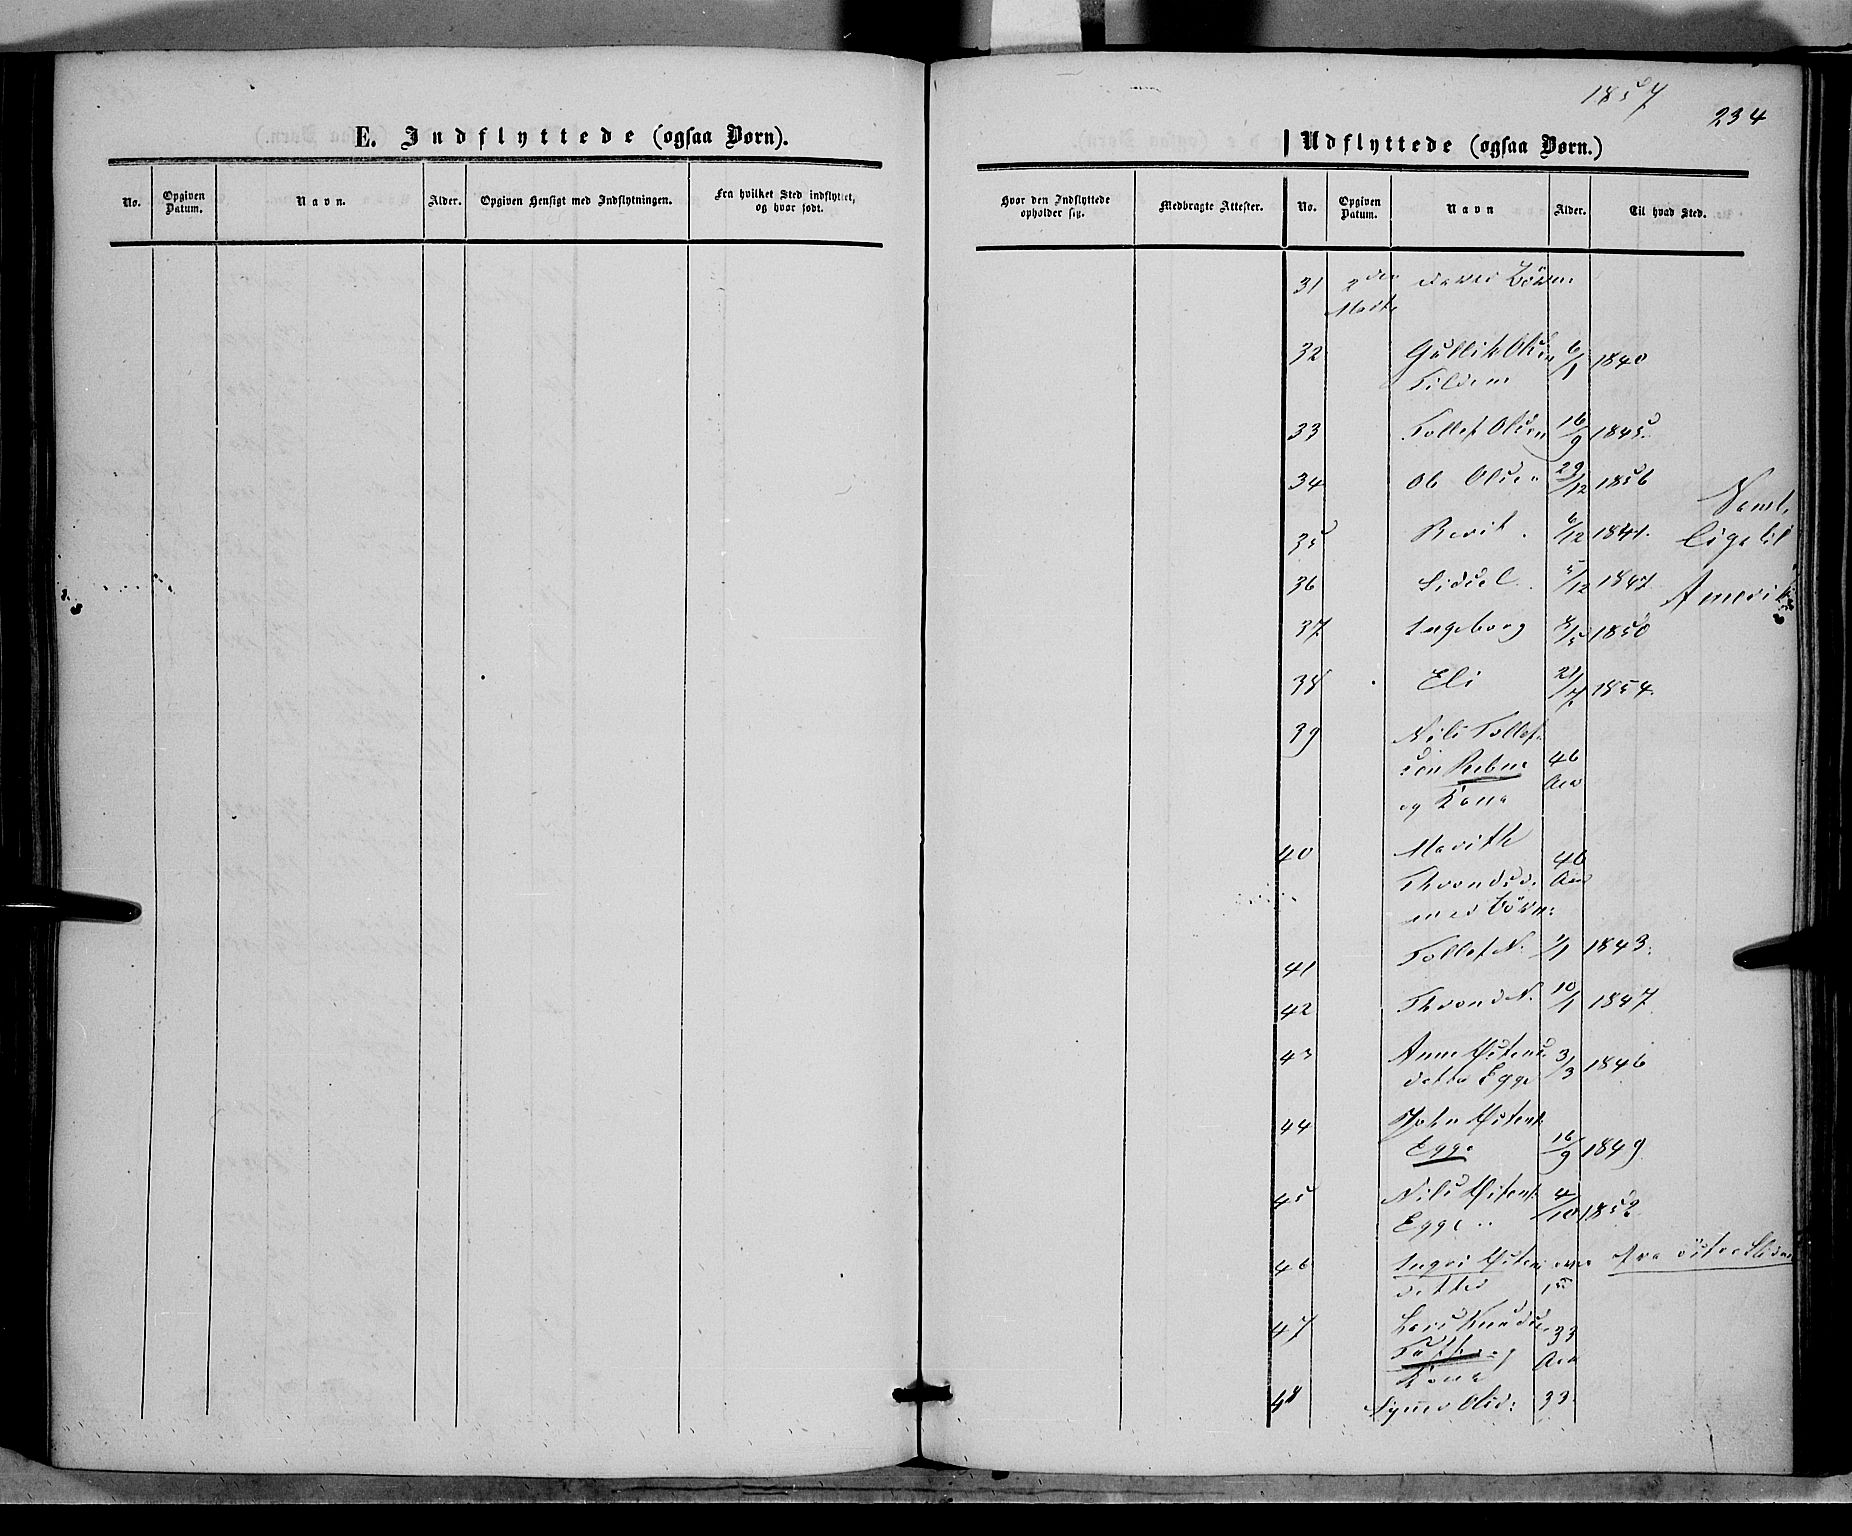 1857
234
E. Indflyttede (ogsaa Børn).
Udflyttede (ogsaa Børn.)
No.
Opgiven Datum.
Navn.
Alder.
Opgiven Hensigt med Indflytningen.
Fra hvilket Sted indflyttet, og hvor født.
Hvor den Indflyttede opholder sig.
Medbragte Attester.
No.
Opgiven Datum.
Navn
Alder.
Til hvad Sted.
31 2den Børn
32 Gullik Olsen 6/1 1840
33 Tollef Olsen 16/9 1845.
34 Ole Olsen 29/12 1856
Saml.
35 Berit. 6/12 1841.
lige til
36 Sidsel. 5/12 1847
Amerika
37 Ingeborg 1850
38 Eli 21/7 1854.
39 Nils Tollef-
sen Rebne 46
og Kona Aar
40 Marith 46
Throndsd. Aar
med Børn:
41 Tollef N. 1/1 1843.
42 Thrond N. 10/1 1847
43 Anne Østens 3/3 1846
datter Egge
44 John Østens
Egge 16/9 1849
45 Nils Østens 4/10 1852
Egge
46 Ingri Østens over fra østre Slidre
datter 15
47 Lars Knuds. 33
Aar
Kona
48 Olsd: 33.